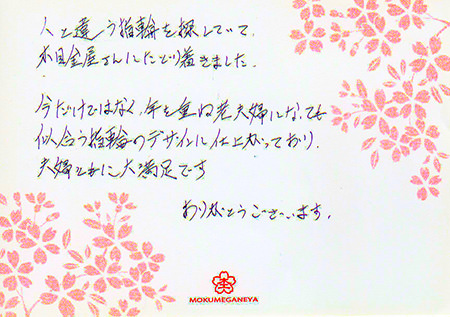 人と違う指輪を探していて、
木目金屋さんにたどり着きました。
今だけではなく、年を重ね老夫婦になっても
似合う指輪のデザインに仕上がっており、
夫婦ともに大満足です
ありがとうございます。
MOKUMEGANEYA